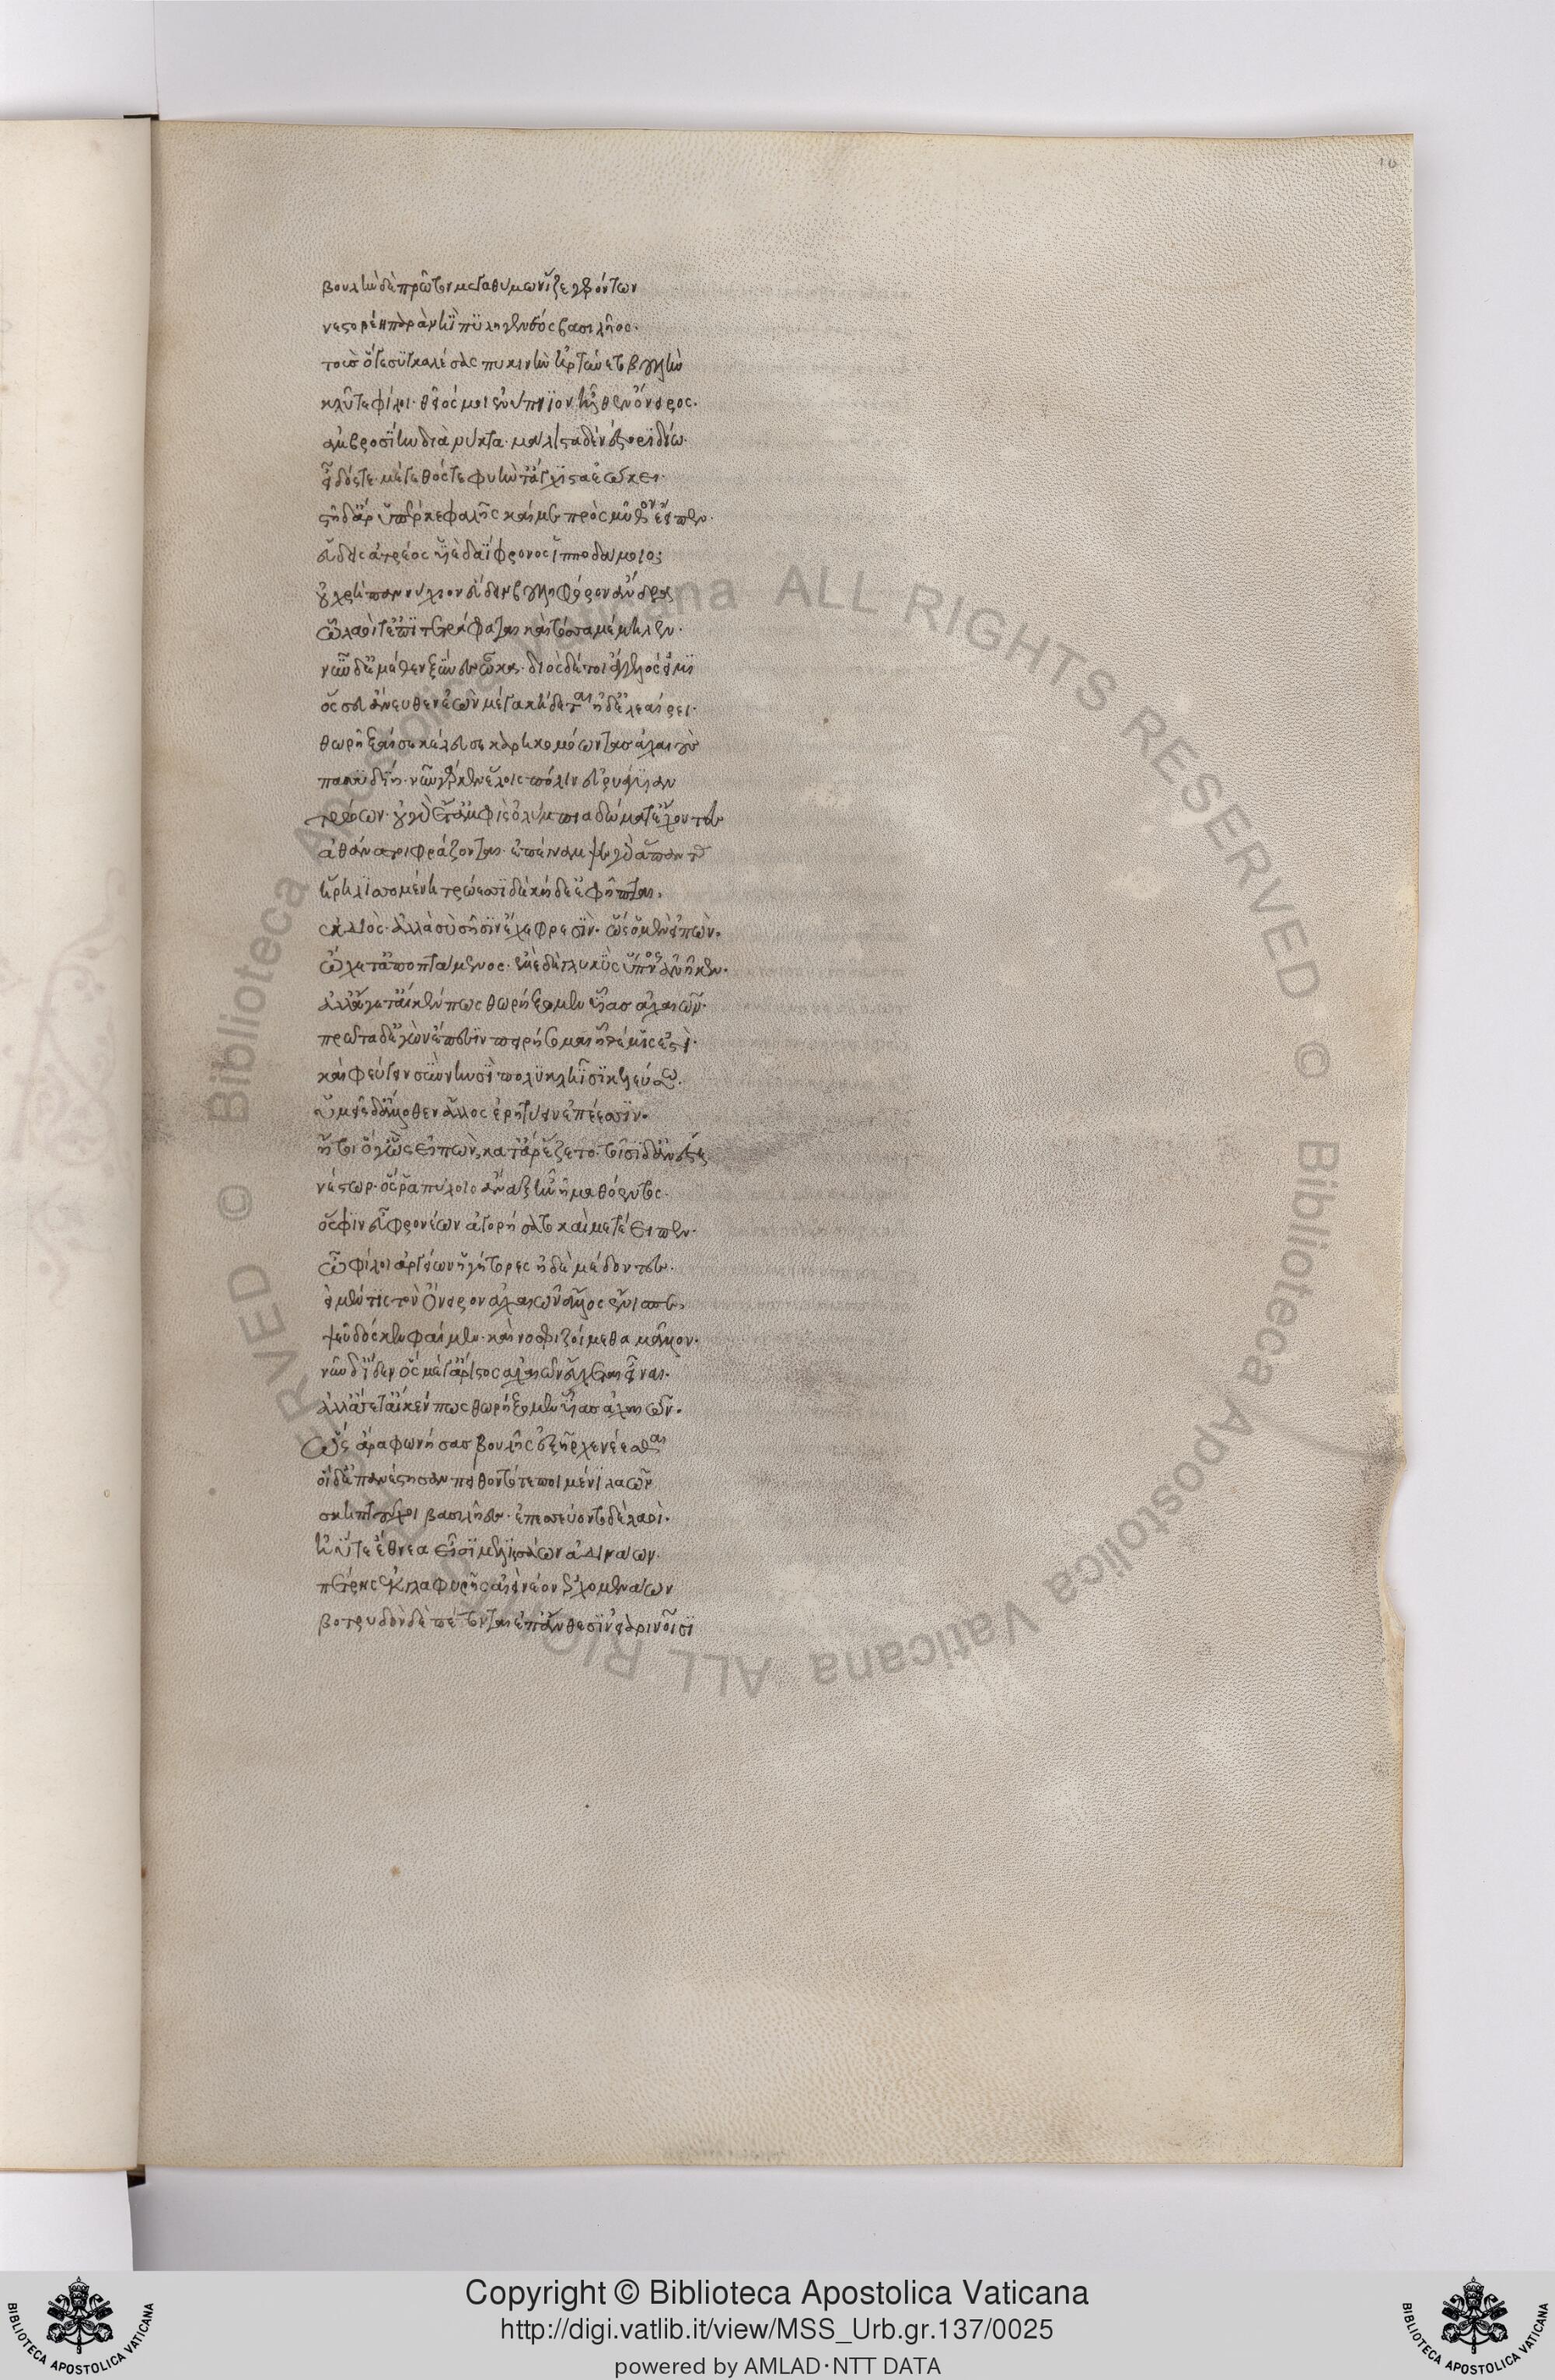 βουλὴν δὲ πρῶτον μεγαθύμων ἷζε γερόντων
νεστορέη παρὰ νηῒ πυληγενέος βασιλῆος·
τοὺς ὅγε συγκαλέσας πυκινὴν ἠρτύνετο βουλὴν
κλῦτε φίλοι· θεῖός μοι ἐνύπνιον ἦλθεν ὄνειρος·
ἀμβροσίην διὰ νύκτα· μάλιστα δὲ νέστορι δίω·
εἶδός τε μέγεθός τε φυὴν τ' ἄγχιστα ἐώκει·
στῆ δ' ἄρ ὑπὲρ κεφαλῆς καί με πρὸς μῦθον ἔειπεν·
εὕδεις ἀτρέος υἱὲ δαΐφρονος ἱπποδάμοιο;
οὐ χρὴ παννύχιον εὕδειν βουληφόρον ἄνδρα
ὧ λαοί τ' ἐπιτετράφαται καὶ τόσσα μέμηλεν·
νῦν δ' ἐμέθεν ξύνες ὦκα· διὸς δέ τοι ἄγγελός εἰμι
ὃς σεῦ ἄνευθεν ἐὼν μέγα κήδεται ἠδ' ἐλεαίρει·
θωρῆξαί σε κέλευσε καρηκομόωντας ἀχαιοὺς
πανσυδίη· νῦν γάρ κεν ἕλοις πόλιν εὐρυάγυιαν
τρώων· οὐ γὰρ ἔτ' ἀμφὶς ὀλύμπια δώματ' ἔχοντες
ἀθάνατοι φράζονται· ἐπέγναμψεν γὰρ ἅπαντας
ἥρη λισσομένη τρώεσσι δὲ κήδε' ἐφῆπται.
ἐκ διὸς· ἀλλὰ σὺ σῆσιν ἔχε φρεσὶν· ὣς ὁ μὲν εἰπὼν·
ὤχετ' ἀποπτάμενος· ἐμὲ δὲ γλυκὺς ὕπνος ἀνῆκεν·
ἀλλ' ἄγετ' αἴ κέν πως θωρήξομεν υἷας ἀχαιῶν·
πρῶτα δ' ἐγὼν ἔπεσιν πειρήσομαι ἣ θέμις ἐστὶ·
καὶ φεύγειν σὺν νηυσὶ πολυκληῖσι κελεύσω.
ὑμεῖς δ' ἄλλοθεν ἄλλος ἐρητύειν ἐπέεσσιν·
ἤτοι ὅγ' ὣς εἰπὼν κατ' ἄρ ἕζετο· τοῖσι δ' ἀνέστη
νέστωρ· ὅς ῥα πύλοιο ἄναξ ἦν ἠμαθόεντος·
ὅ σφιν εὐφρονέων ἀγορήσατο καὶ μετέειπεν·
ὦ φίλοι ἀργείων ἡγήτορες ἠδὲ μέδοντες·
εἰ μέν τις τὸν ὄνειρον ἀχαιῶν ἄλλος ἔνισπε,
ψεῦδός κεν φαίμεν· καὶ νοσφιζοίμεθα μᾶλλον·
νῦν δ' ἴδεν ὃς μέγ' ἄριστος ἀχαιῶν εὔχεται εἶναι·
ἀλλ' ἄγετ' αἴ κέν πως θωρήξομεν υἷας ἀχαιῶν·
ὣς ἄρα φωνήσας βουλῆς ἐξῆρχε νέεσθαι
οἱ δ' ἐπανέστησαν πείθοντό τε ποιμένι λαῶν
σκηπτοῦχοι βασιλῆες· ἐπεσσεύοντο δὲ λαοὶ·
ἠΰτε ἔθνεα εἶσι μελισσάων ἀδινάων·
πέτρης ἐκ γλαφυρῆς αἰεὶ νέον ἐρχομενάων
βοτρυδὸν δὲ πέτονται ἐπ' ἄνθεσιν εἰαρινοῖσι
10
Copyright © Biblioteca Apostolica Vaticana
http://digi.vatlib.it/view/MSS_Urb.gr.137/0025
powered by AMLAD·NTT DATA
BIBLIOTECA APOSTOLICA VATICANA
BIBLIOTECA APOSTOLICA VATICANA
© Biblioteca Apostolica Vaticana ALL RIGHTS RESERVED © Biblioteca Apostolica Vaticana ALL RIGHTS RESERVED